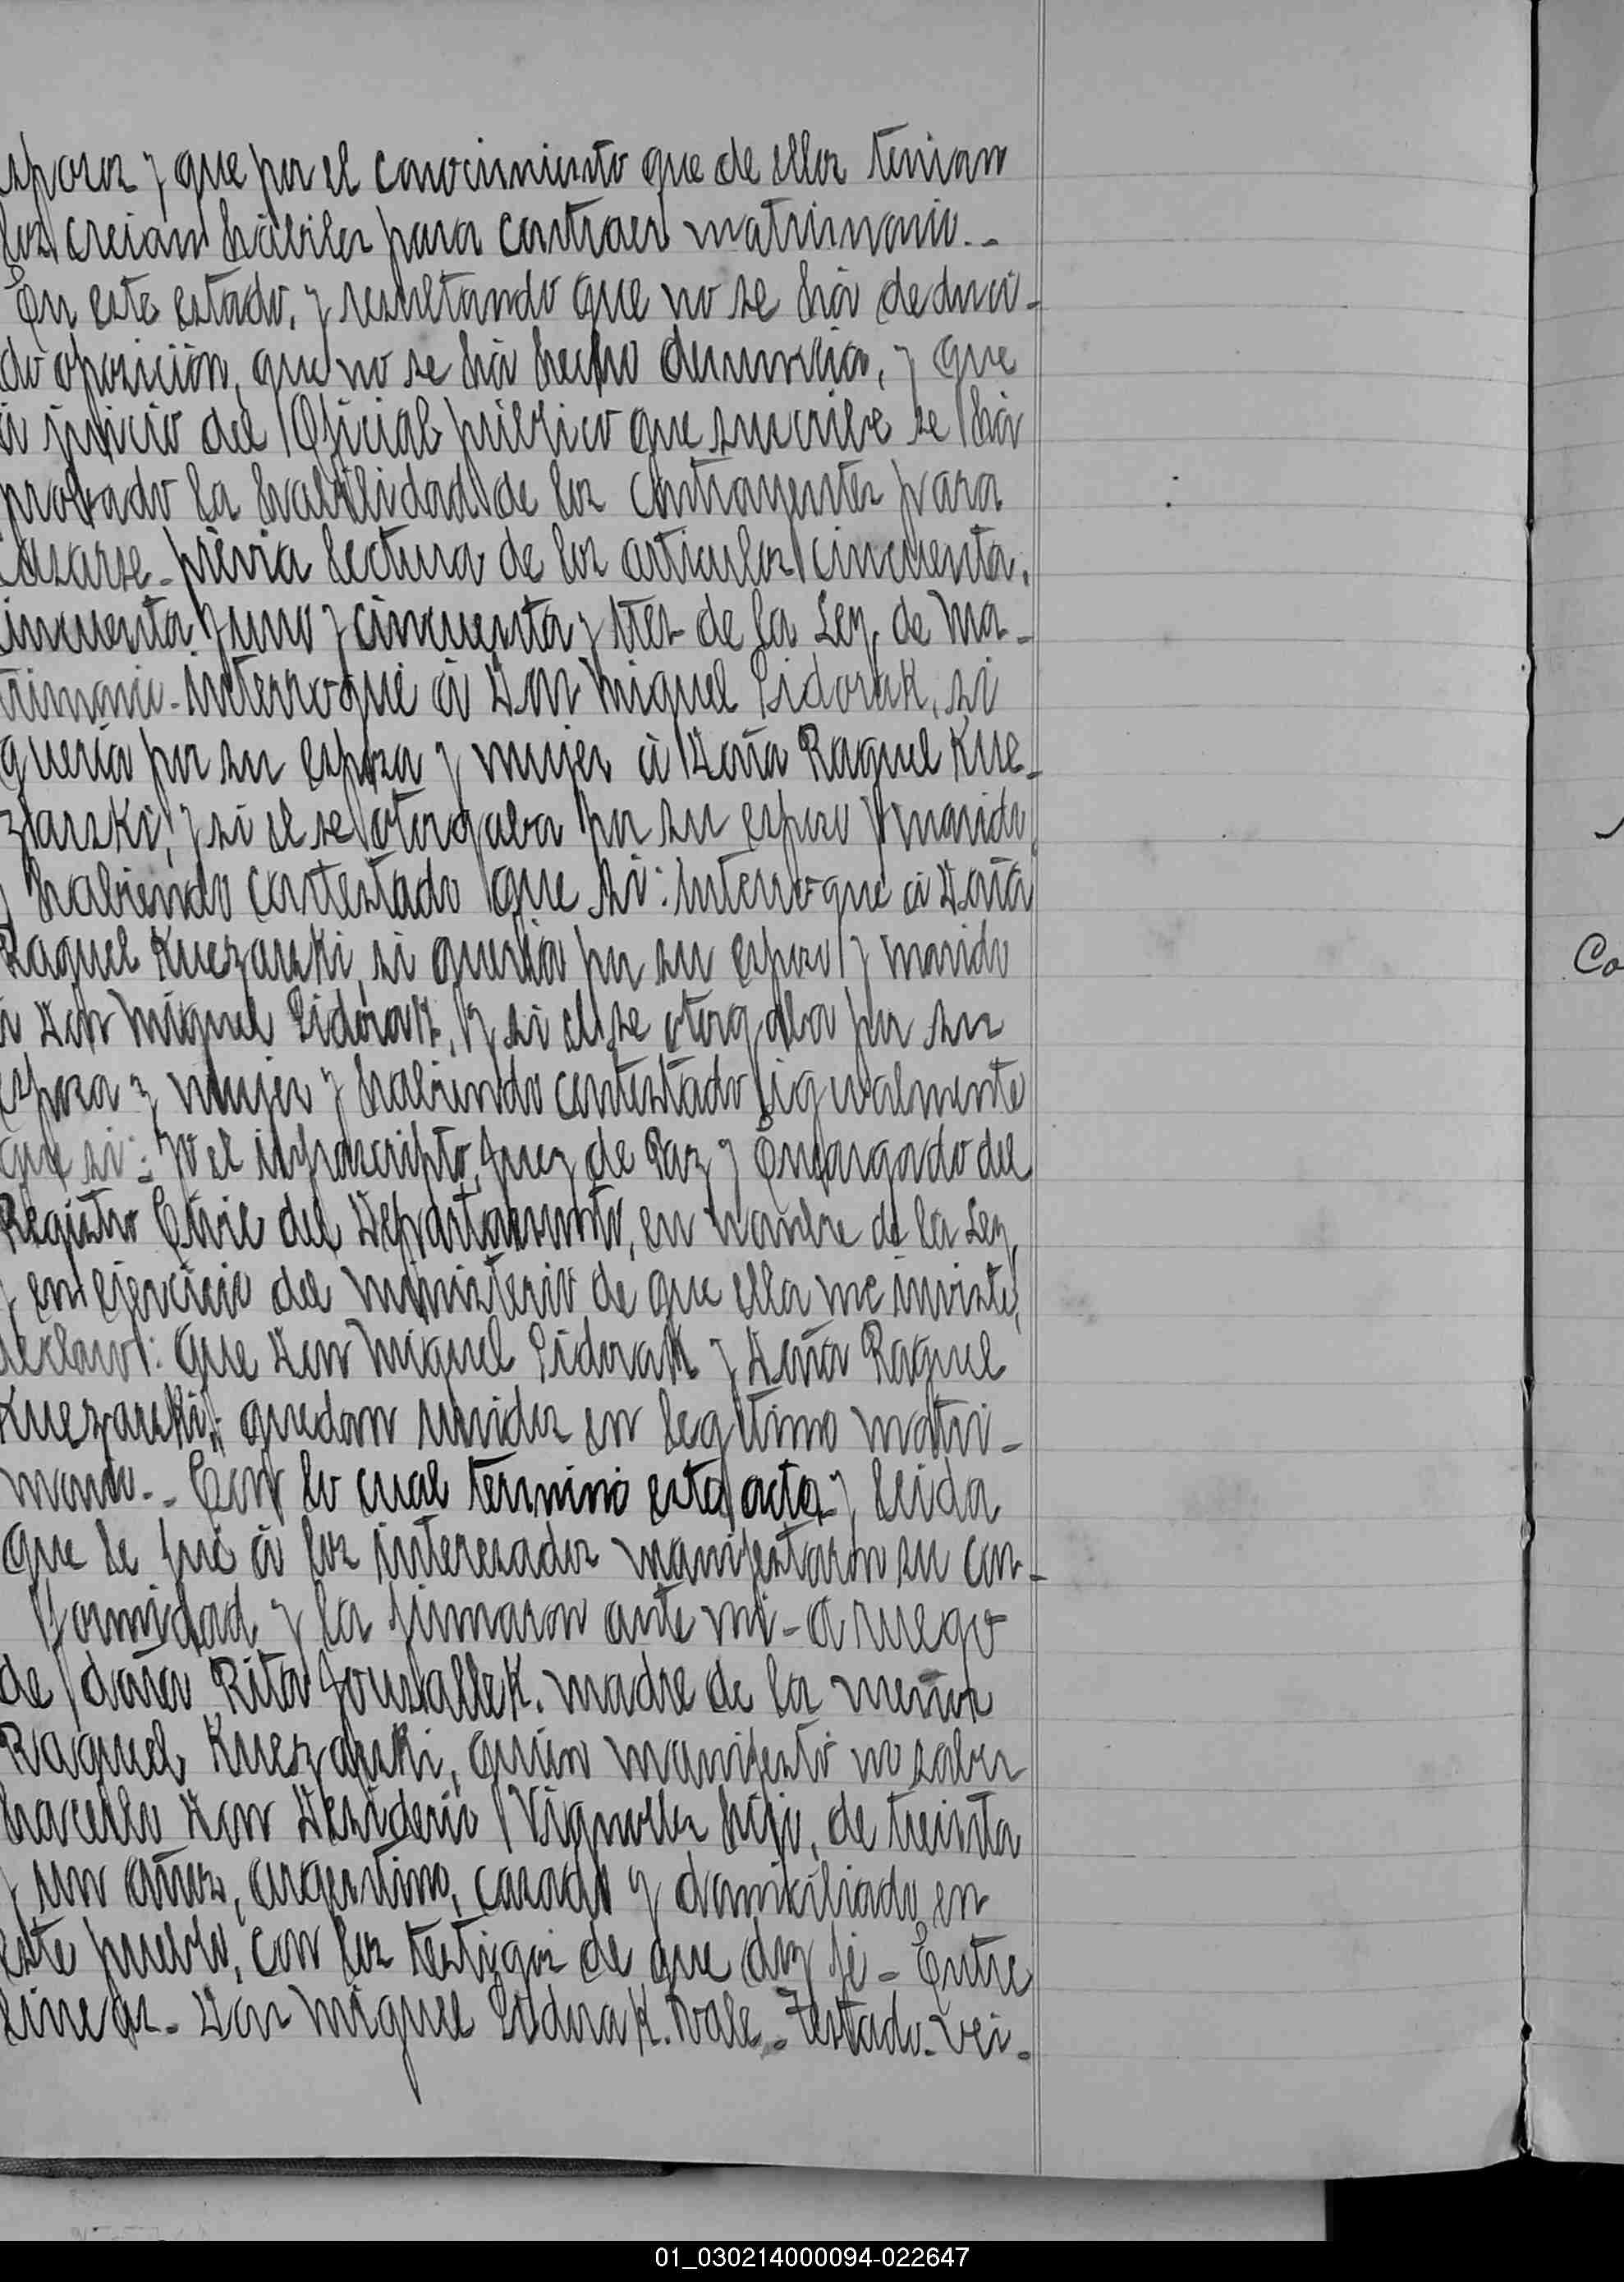 esposos y que por el conocimiento que de ellos tenian
los creian hábiles para contraer matrimonio.-
En este estado, y resultando que no se há deduci-
do oposición, que no se há hecho denuncia, y que
á juicio del Oficial público que suscribe se há
probado la habilidad de los contrayentes para
casarse- prévia lectura de los articulos cincuenta,
cincuenta y uno y cincuenta y tres de la Ley de Ma-
trimonio- Interrogué á Don Miguel Sidorak, si
quería por su esposa y mujer á Doña Raquel Kue-
zarski, y si el se otorgaba por su esposo y marido,
y habiendo contestado que si: Interrogué á Doña
Raquel Kuezarski, si queria por su esposo y marido
á Don Miguel Sidorak, y si el se otorgaba por su
esposa y mujer y habiendo contestado igualmente
que si: Yo el infrascripto, Juez de Paz y Encargado del
Registro Civil del Departamento, en nombre de la Ley,
y en ejercicio del ministerio de que ella me inviste,
declaro: que Don Miguel Sidorak y Doña Raquel
Kuezarski, quedan unidos en legitimo matri-
monio.- Con lo cual terminó esta acta y leida
que le fué á los interesados manifestaron su con-
formidad y la firmaron ante mi- á ruego
de doña Rita madre de la menor
Raquel Kuezarski, quién manifestó no saber
hacerlo Don Desiderio Vignolles hijo, de treinta
y un años, argentino, casado y domiciliado en
este pueblo, con los testigos de que doy fé- Entre
lineas- Don Miguel Sidorak. Vale- Testado- vei-
Co
01_030214000094-022647